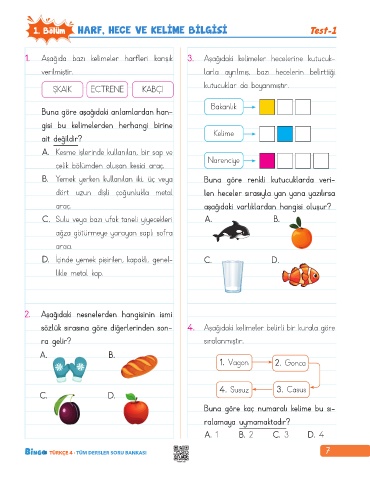 1. Bölüm HARF, HECE VE KELİME BİLGİSİ Test-1
1. Aşağıda bazı kelimeler harfleri karışık
verilmiştir.
SKAIK ECTRENE KABÇI
Buna göre aşağıdaki anlamlardan han-
gisi bu kelimelerden herhangi birine
ait değildir?
A. Kesme işlerinde kullanılan, bir sap ve
çelik bölümden oluşan kesici araç.
B. Yemek yerken kullanılan iki, üç veya
dört uzun dişli çoğunlukla metal
araç.
C. Sulu veya bazı ufak taneli yiyecekleri
ağza götürmeye yarayan saplı sofra
aracı.
D. İçinde yemek pişirilen, kapaklı, genel-
likle metal kap.
2. Aşağıdaki nesnelerden hangisinin ismi
sözlük sırasına göre diğerlerinden son-
ra gelir?
A. B.
C. D.
3. Aşağıdaki kelimeler hecelerine kutucuk-
larla ayrılmış, bazı hecelerin belirttiği
kutucuklar da boyanmıştır.
Bakanlık
Kelime
Narenciye
Buna göre renkli kutucuklarda veri-
len heceler sırasıyla yan yana yazılırsa
aşağıdaki varlıklardan hangisi oluşur?
A. B.
C. D.
4. Aşağıdaki kelimeler belirli bir kurala göre
sıralanmıştır.
1. Vagon 2. Gonca
4. Susuz 3. Casus
Buna göre kaç numaralı kelime bu sı-
ralamaya uymamaktadır?
A. 1 B. 2 C. 3 D. 4
BİNGO TÜRKÇE 4 - TÜM DERSLER SORU BANKASI 7